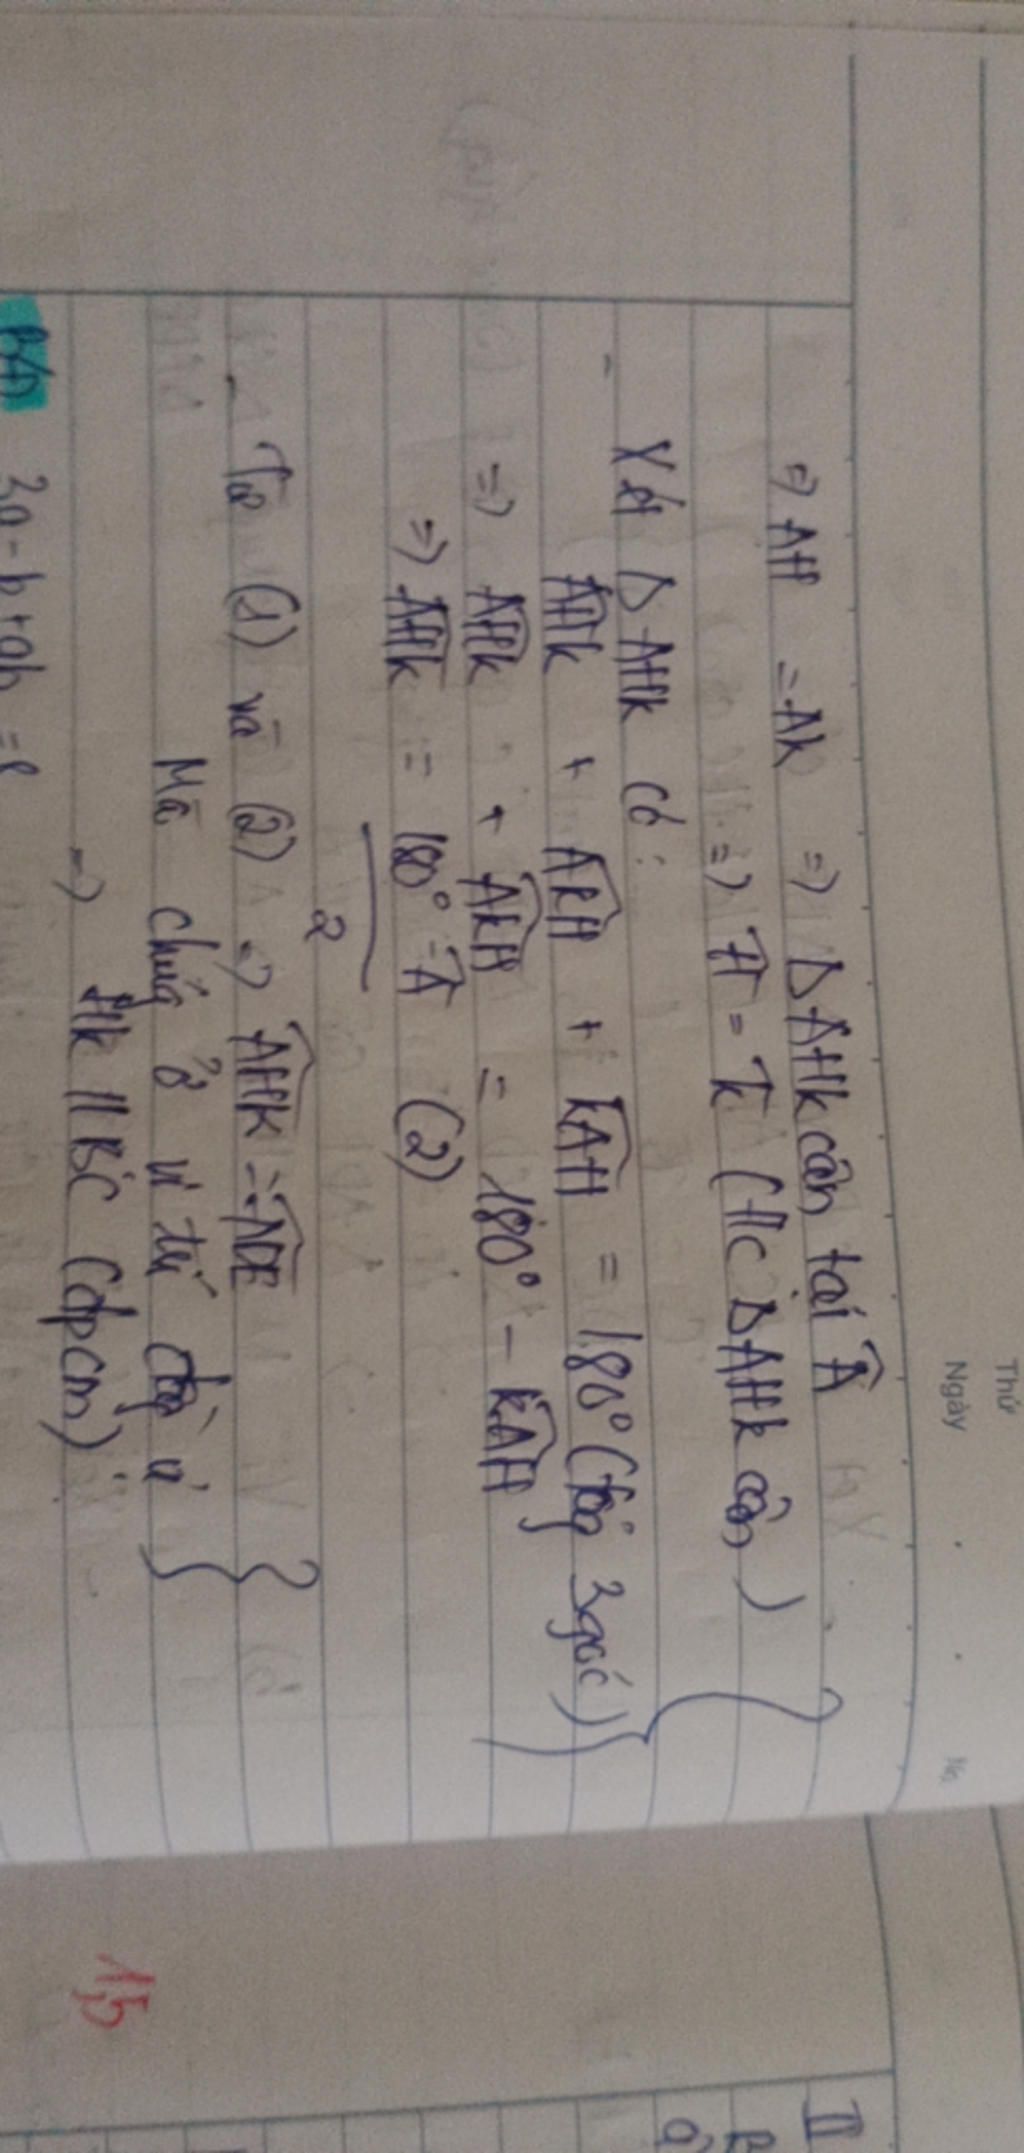 Thứ
Ngày
No.
⇒ AH = AK ⇒ Δ AHK cân tại Â
⇒ Ĥ = K̂ (t/c Δ AHK cân)
- Xét Δ AHK có:
AHK + AKH + KAH = 180° (tổng 3 góc)
⇒ AHK + AKH = 180° - KAH
⇒ AHK = 180° - Â (2)
2
- Từ (1) và (2) ⇒ AHK = ADE
Mà chúng ở vị trí đồng vị
⇒ HK // BC (đpcm)
3a - b + ab = 8
1,5
II